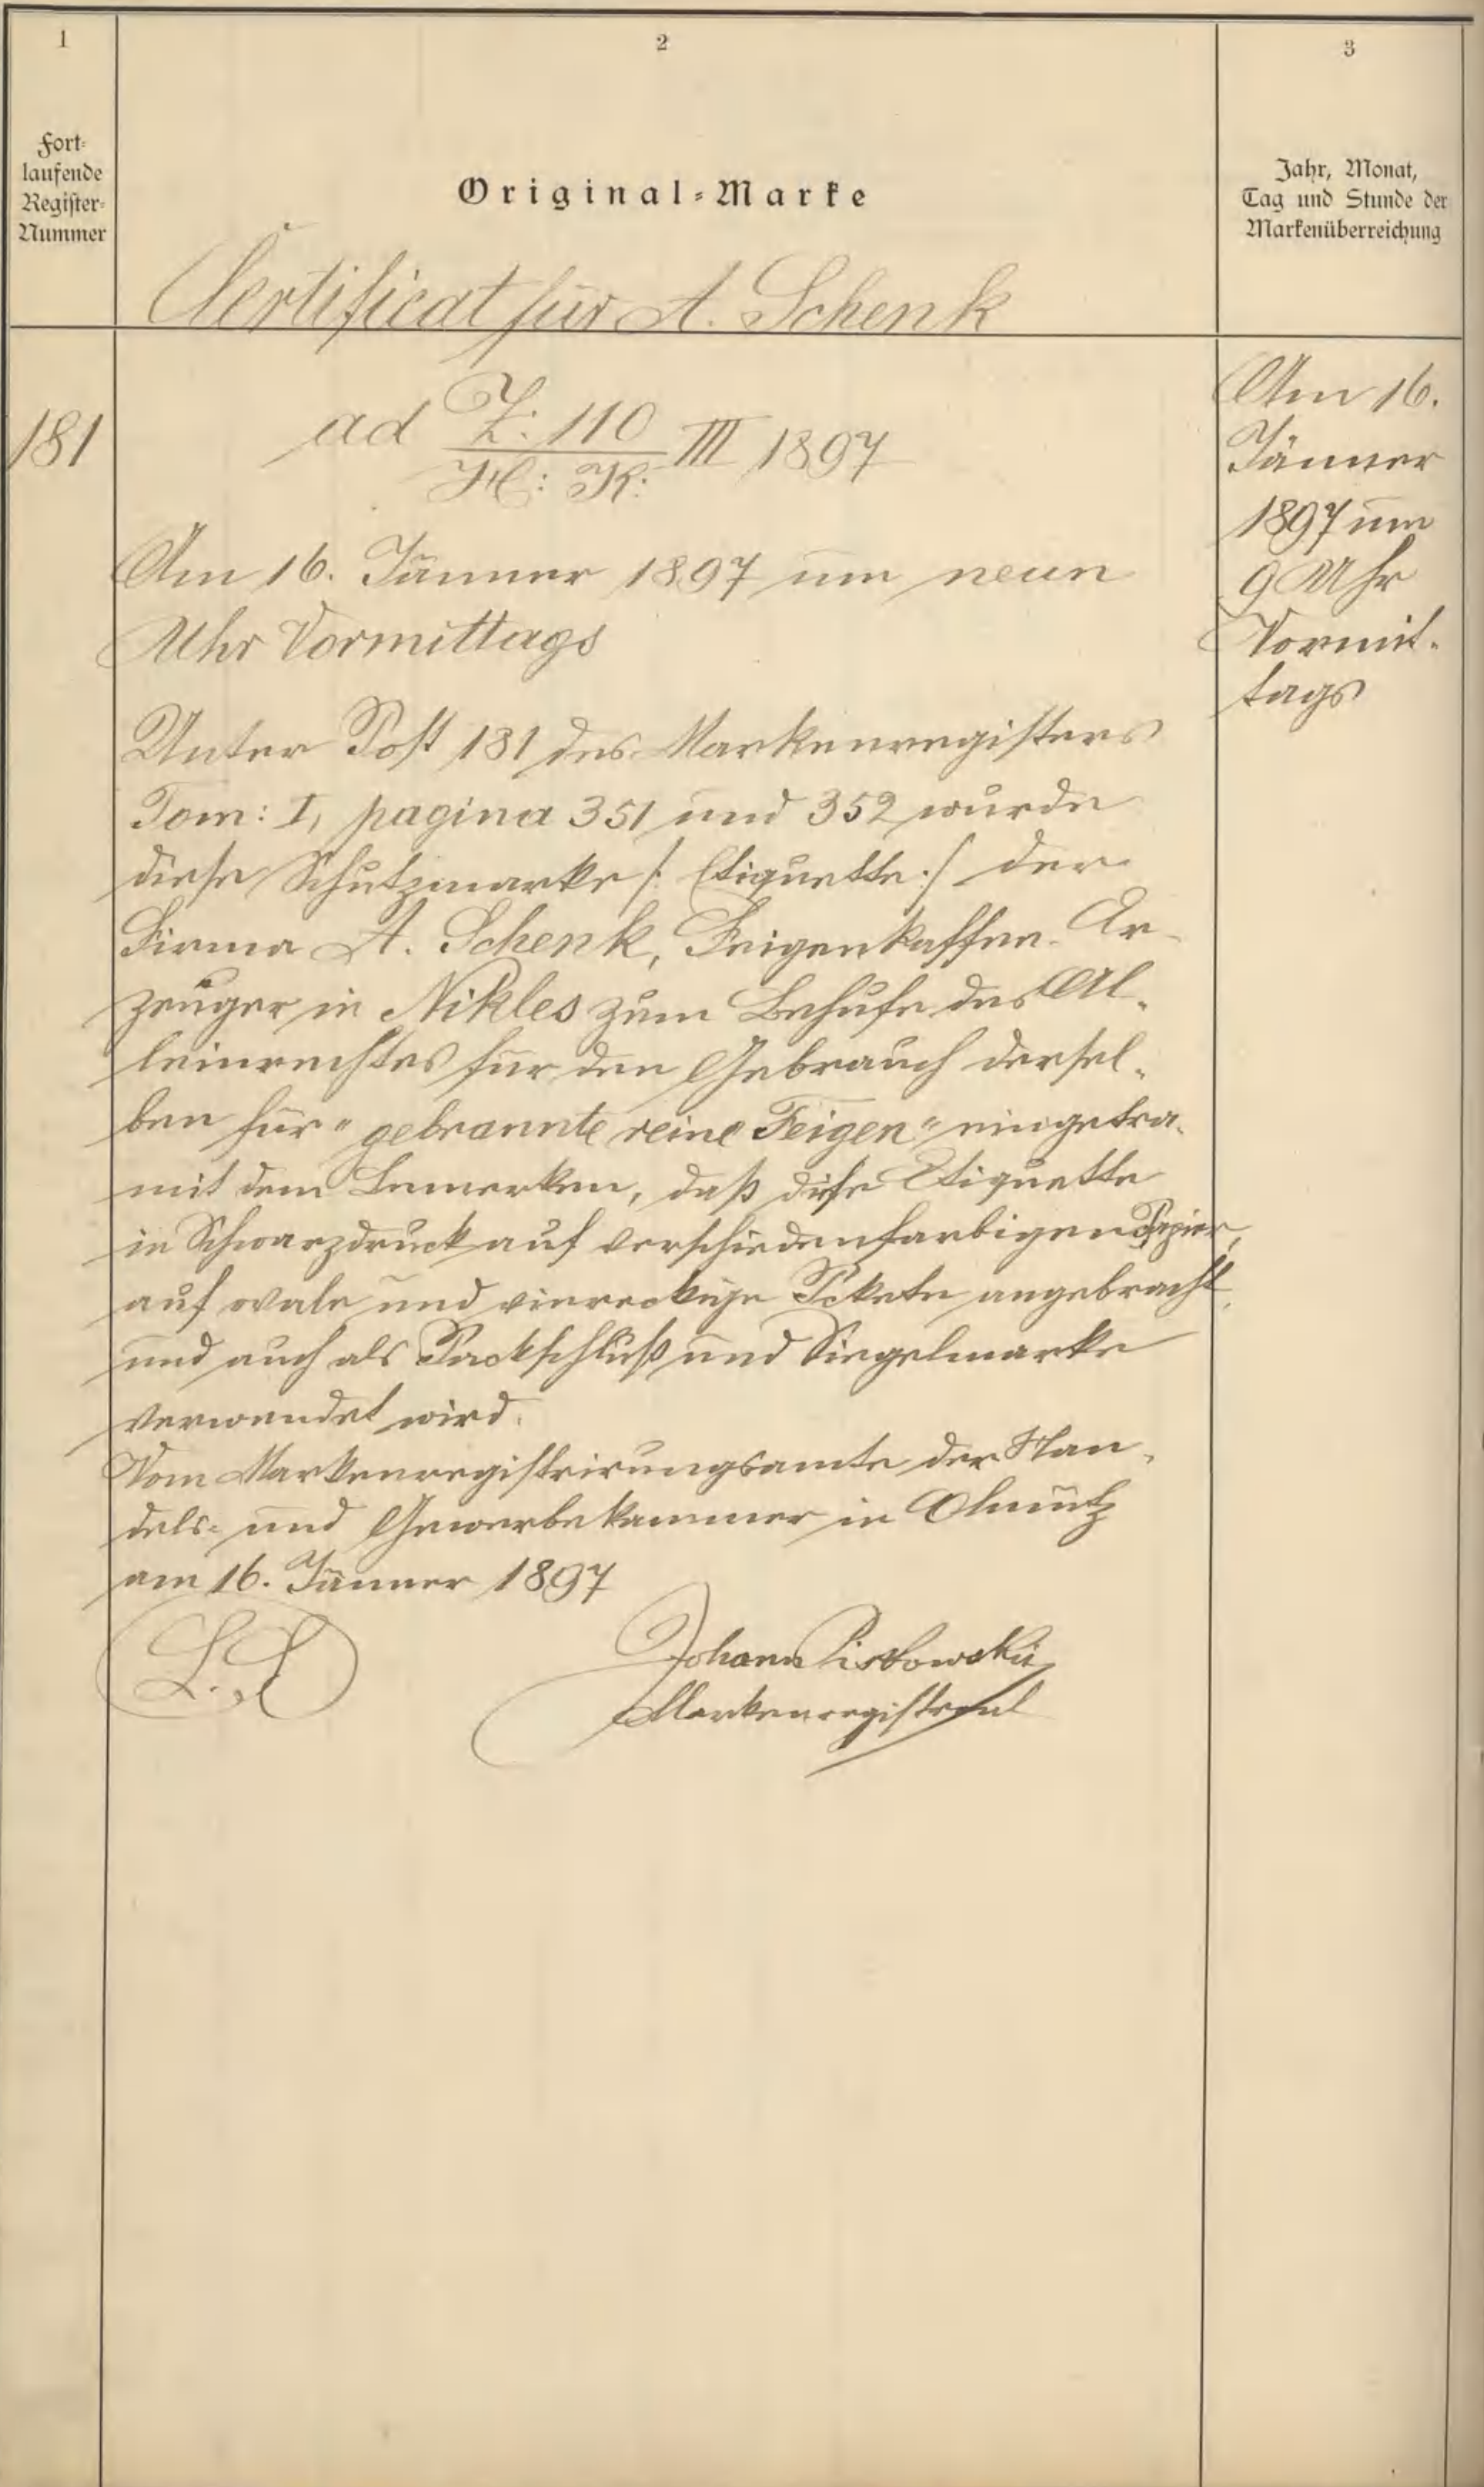 1
2
3
Fort-
laufende
Register-
Nummer
Original-Marke
Jahr, Monat,
Tag und Stunde der
Markenüberreichung
Certificat für A. Schenk
181
ad Z: 110 III 1897
H: K:
Am 16. Jänner 1897 um neun
Uhr Vormittags
Unter Post 181 des Markenregisters
Tom: I, pagina 351 und 352 wurde
diese Schutzmarke /: Etiquette :/ der
Firma A. Schenk, Feigenkaffee-Er-
zeuger in Nikles zum Behufe des Al-
leinrechtes für den Gebrauch dersel-
ben für "gebrannte reine Feigen" eingetra-
mit dem Bemerken, daß diese Etiquette
in Schwarzdruck auf verschiedenfarbigen Papier,
auf ovale und viereckige Pckete angebracht
und auch als Packschluß und Siegelmarke
verwendet wird.
Vom Markenregistrirungsamte der Han-
dels- und Gewerbekammer in Olmütz
am 16. Jänner 1897
L.S
Johann
Am 16.
Jänner
1897 um
9 Uhr
Vormit-
tags